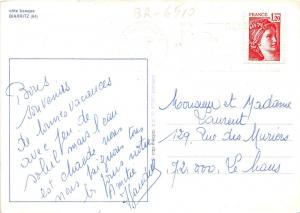 côte basque
BIARRITZ (64)
B2-6510
FRANCE
1,20
Bons
souvenirs
de bonnes vacances
avec peu de
soleil mais l'eau
est chaude nous
nous
Amitié
Monsieur et Madame
Laurent
129, Rue des Muriers
72.000. Le Mans